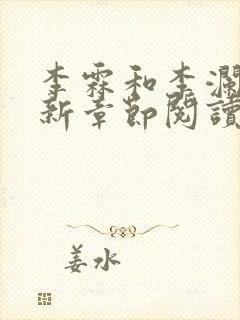 李霖和李瀾
新章節閱讀
姜水